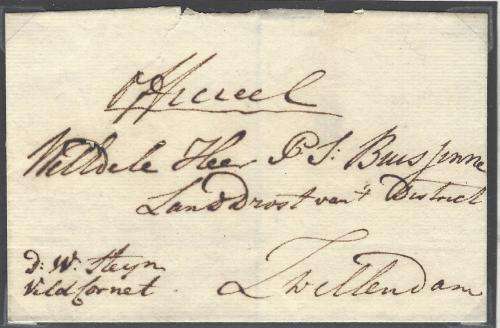 Officieel
Weledele Heer P S: Buissinne
Landdrost van't District
Zwellendam
D: W: Steyn
Veld Cornet.